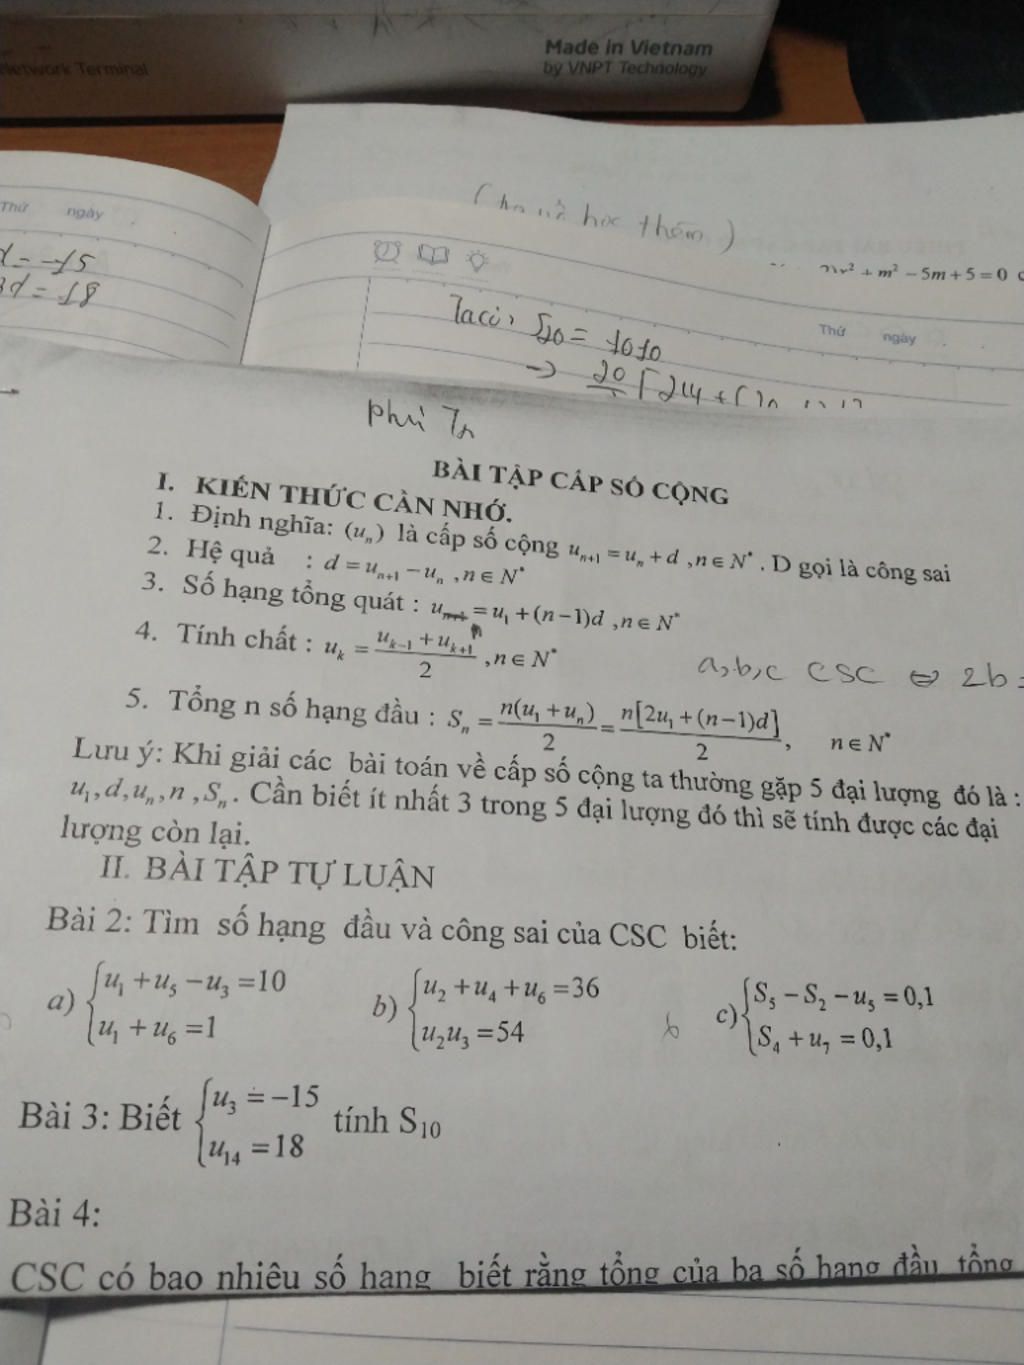 Made in Vietnam
by VNPT Technology
Network Terminal
học thêm)
Thứ ngày
d = -15
3d = 18
+ m² − 5m + 5 = 0
Thứ ngày
Ta có: S₂₀ = 1010
→ 20
BÀI TẬP CẤP SỐ CỘNG
I. KIẾN THỨC CẦN NHỚ.
1. Định nghĩa: (uₙ) là cấp số cộng uₙ₊₁ = uₙ + d , n ∈ N* . D gọi là công sai
2. Hệ quả : d = uₙ₊₁ − uₙ , n ∈ N*
3. Số hạng tổng quát : uₙ = u₁ + (n−1)d , n ∈ N*
4. Tính chất : uₖ = (uₖ₋₁ + uₖ₊₁)/2 , n ∈ N*
a, b, c CSC ⇔ 2b =
5. Tổng n số hạng đầu : Sₙ = n(u₁ + uₙ)/2 = n[2u₁ + (n−1)d]/2 , n ∈ N*
Lưu ý: Khi giải các bài toán về cấp số cộng ta thường gặp 5 đại lượng đó là :
u₁, d, uₙ, n , Sₙ . Cần biết ít nhất 3 trong 5 đại lượng đó thì sẽ tính được các đại
lượng còn lại.
II. BÀI TẬP TỰ LUẬN
Bài 2: Tìm số hạng đầu và công sai của CSC biết:
a) { u₁ + u₅ − u₃ = 10
u₁ + u₆ = 1
b) { u₂ + u₄ + u₆ = 36
u₂u₃ = 54
c) { S₅ − S₂ − u₅ = 0,1
S₄ + u₇ = 0,1
Bài 3: Biết { u₃ = −15
u₁₄ = 18 tính S₁₀
Bài 4:
CSC có bao nhiêu số hạng biết rằng tổng của ba số hạng đầu tổng